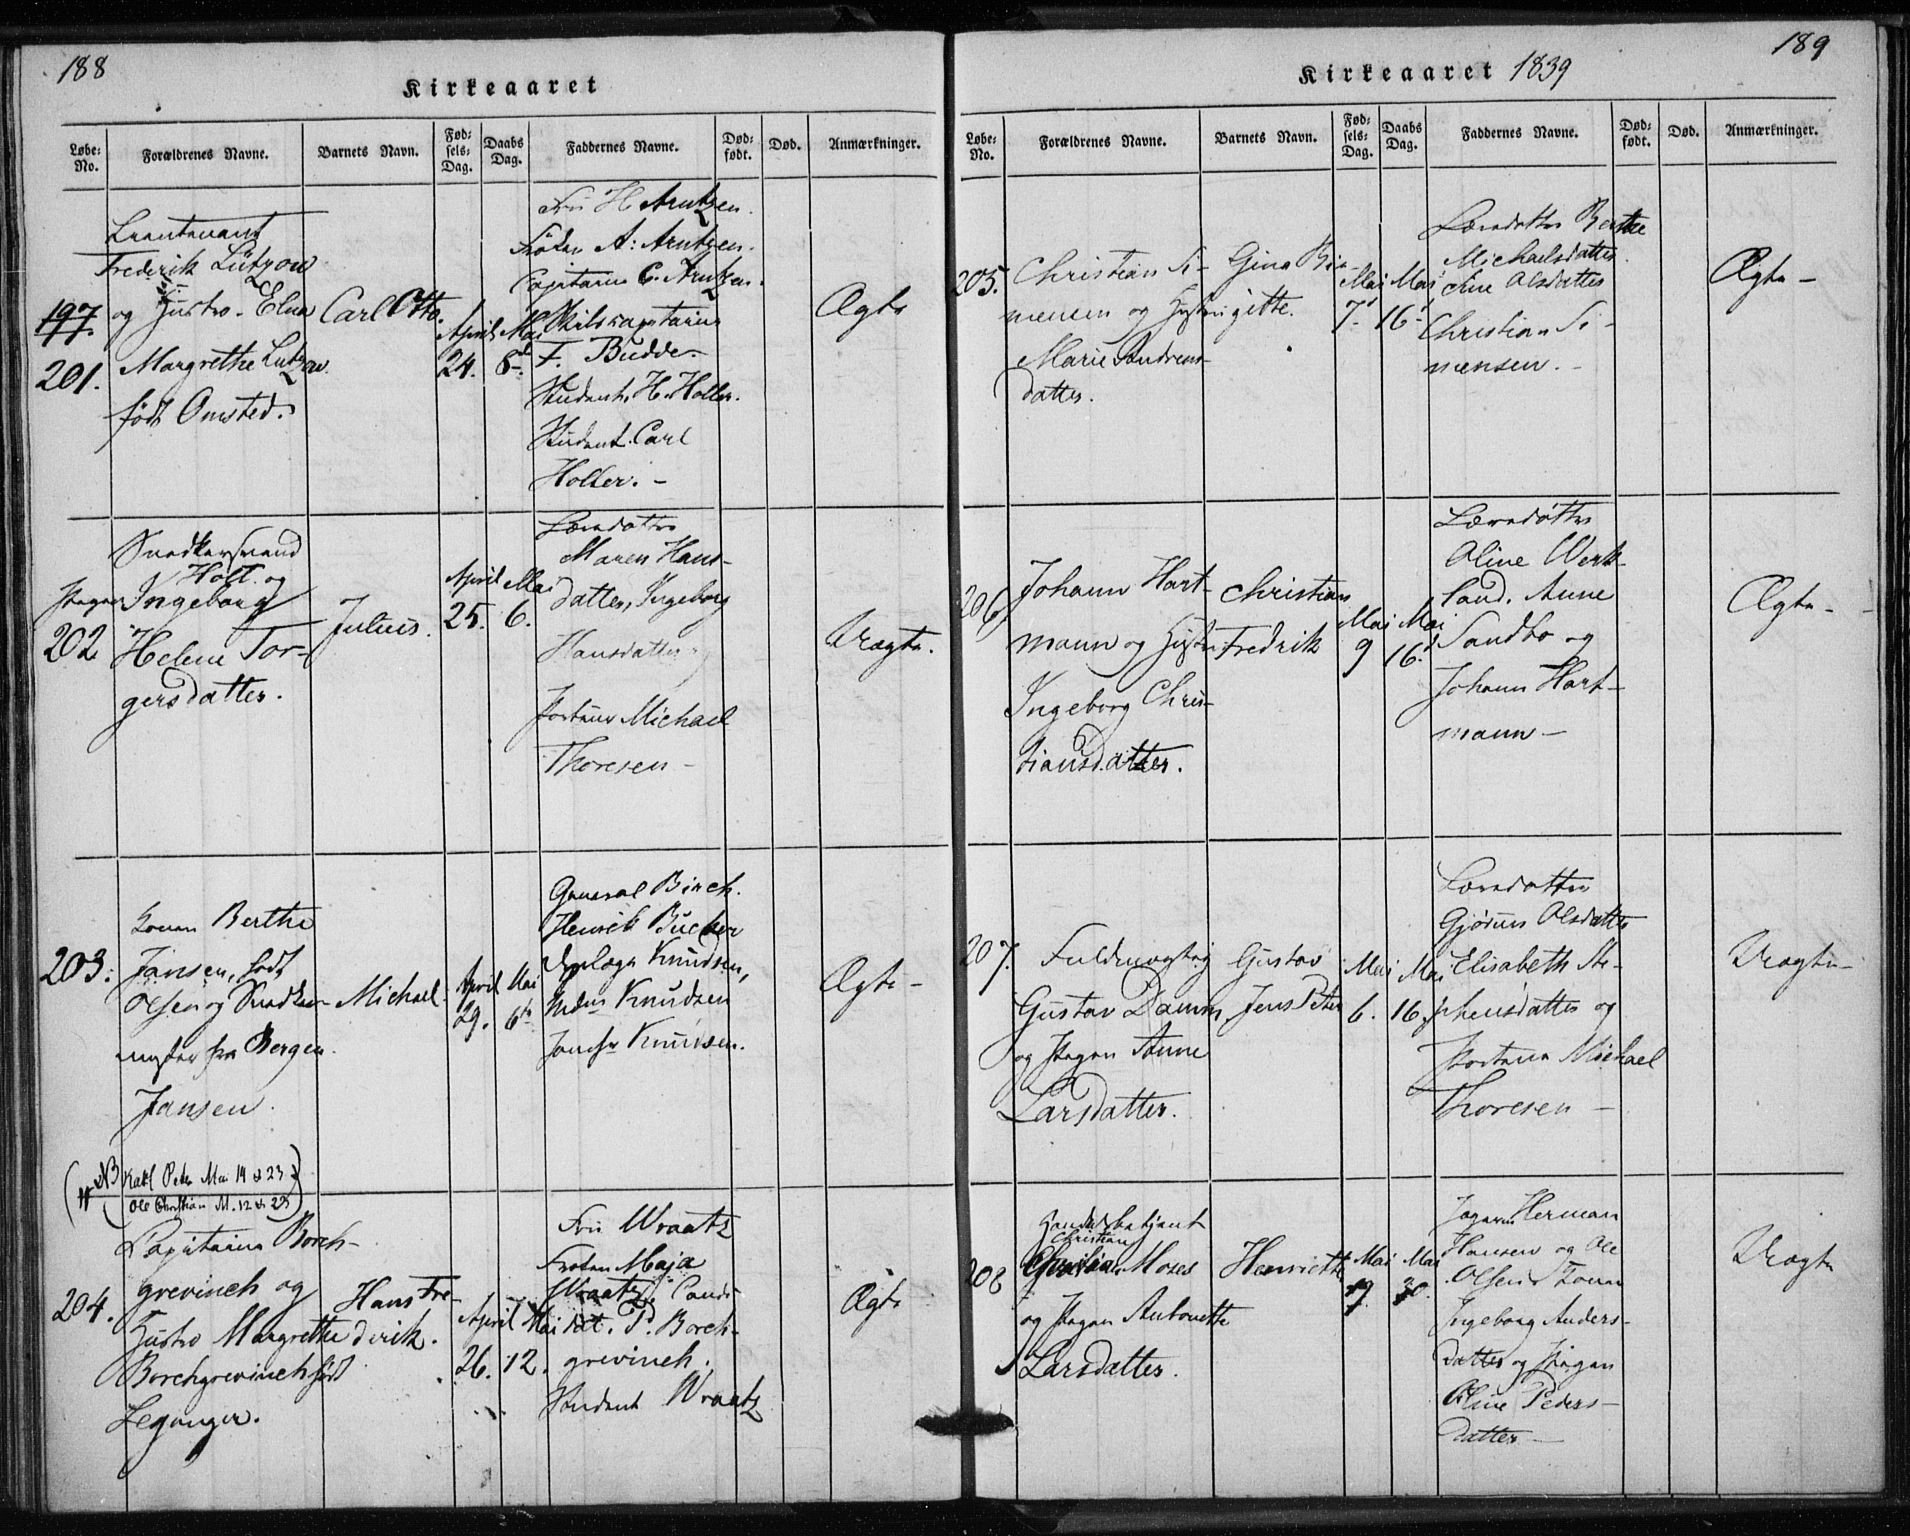 188
Kirkeaaret
Løbe-No. Forældrenes Navne. Barnets Navn. Fødsels-Dag. Daabs Dag. Faddernes Navne. Død-født. Død. Anmærkninger.
197.
201.
Lieutenant
Frederik Lützow
og Hustro Elna
Margrethe Lützow
født Omsted.
Carl Otto.
April
24.
Mai
8d
Fru H Arntzen.
Frøken A: Arntzen.
Capitaine C. Arntzen.
Skibscapitaine
F. Budde.
Student. H. Holter.
Student. Carl
Holter. –
Ægte
Pigen
202
Snedkersvend
Holt. og
Ingeborg
Helene Tor-
gersdatter.
Julius.
April
25.
Mai
6.
Maren Hans-
datter, Ingeborg
Hansdatter
Portner Michael
Thoresen –
Uægte.
203.
Konen Berthe
Jansen, født
Olsen og Snedker-
mester fra Bergen
Jansen.
Michael
April
29.
Mai
6te
General Birch.
Henrik Bucher
Knudsen,
Mdm Knudsen
Jomfr Knudsen.
Ægte –
NB Karl Peter Mai 14 & 23
Ole Christian M. 12 & 23
204.
Capitaine Borch-
grevinch og
Hustro Margrethe
Borchgrevinch født
Leganger.
Hans Fre-
derik.
April
26.
Mai
12.
Fru Wraatz
Frøken Maja
Wraatz, Candi-
dat. P. Borch-
grevinch.
Student Wraatz
Ægte
189
Kirkeaaret 1839
Løbe-No. Forældrenes Navne. Barnets Navn. Fødsels-Dag. Daabs Dag. Faddernes Navne. Død-født. Død. Anmærkninger.
205.
Christian Si-
mensen og Hustru
Marie Andreas-
datter.
Gina Bir-
gitte.
Mai
7.
Mai
16.
Berthe
Michaelsdatter.
Ane Olsdatter
Christian Si-
mensen. –
Ægte –
206.
Johann Hart-
mann og Hustru
Ingeborg Chris-
tiansdatter.
Christian
Fredrik
Mai
9
Mai
16.
Aline Werk-
land, Anne
Sandbo og
Johann Hart-
mann –
Ægte –
207.
Fuldmægtig
Gustav Damm
og Pigen Anne
Larsdatter.
Gustav
Jens Peter
Mai
6.
Mai
16.
Gjørun Olsdatter
Elisabeth Ste-
phensdatter og
Portner Michael
Thoresen –
Uægte –
208
Handelsbetjent
Christian
Moses
og Pigen Antonette
Larsdatter.
Henriette
Mai
Mai
Herman
Hansen og Ole
Olsen Konen
Ingeborg Anders-
datter og Pigen
Oline Peders-
datter –
Uægte